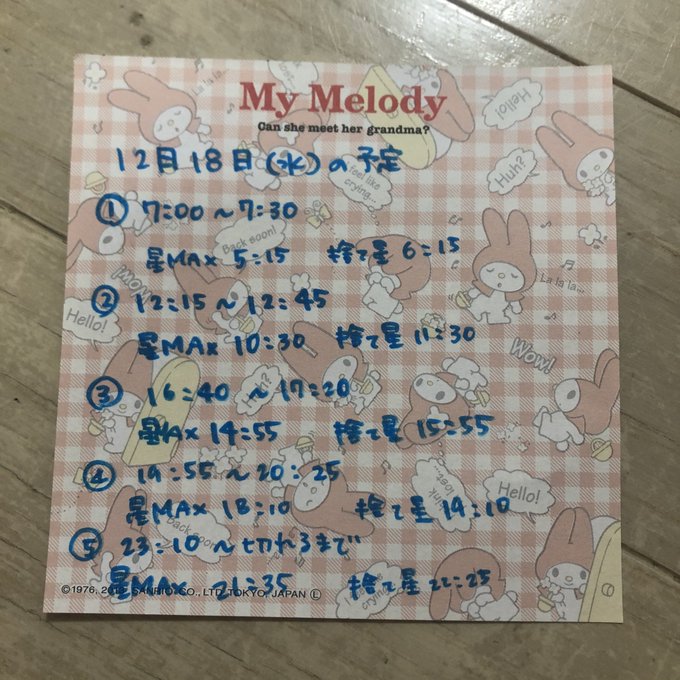 My Melody
Can she meet her grandma?
12月18日(水)の予定
① 7:00〜7:30
星MAX 5:15 捨て星 6:15
② 12:15〜12:45
星MAX 10:30 捨て星 11:30
③ 16:40 〜 17:20
星MAX 14:55 捨て星 15:55
④ 19:55〜20:25
星MAX 18:10 捨て星 19:10
⑤ 23:10〜切れるまで
星MAX 21:35 捨て星 22:25
La la la...
Hello!
Huh?
feel like crying...
Back soon!
La la la...
Wow!
Hello!
Wow!
Hello!
Back soon!
SANRIO CO., LTD. TOKYO, JAPAN Ⓛ